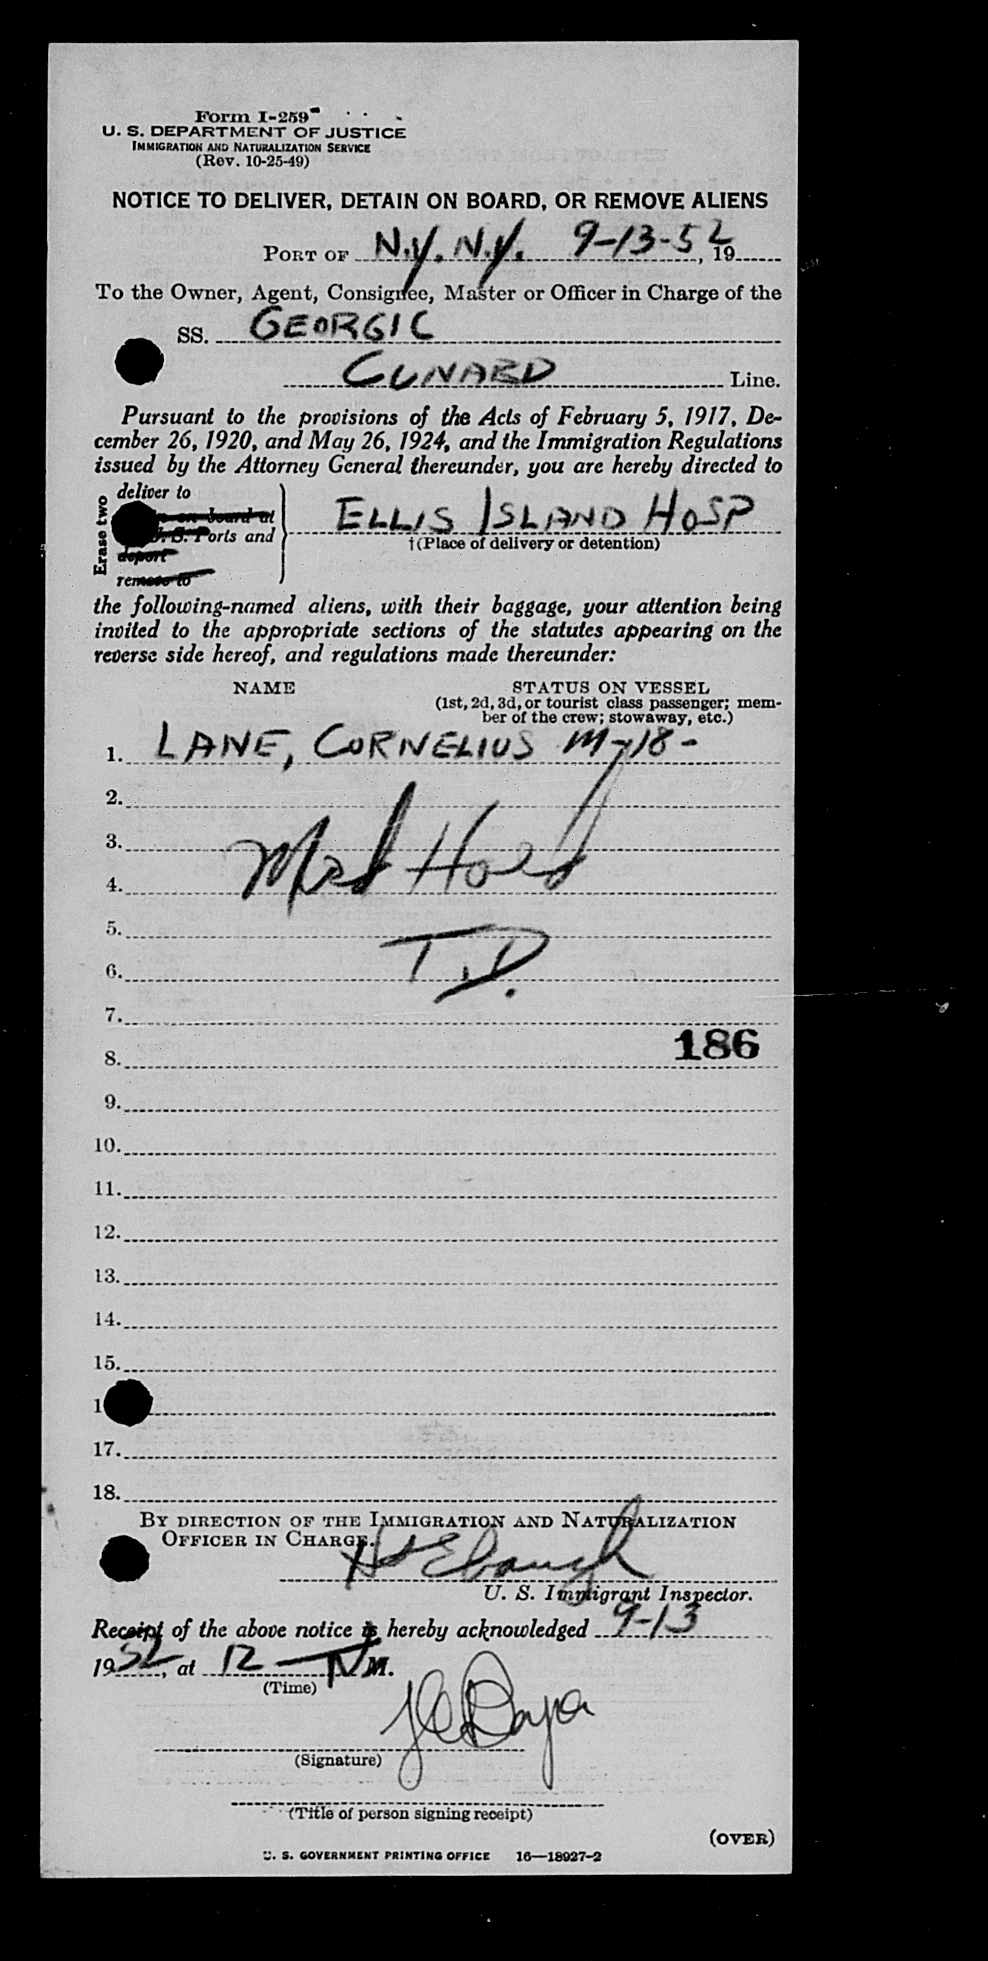 Form I-259
U. S. DEPARTMENT OF JUSTICE
IMMIGRATION AND NATURALIZATION SERVICE
(Rev. 10-25-49)
NOTICE TO DELIVER, DETAIN ON BOARD, OR REMOVE ALIENS
PORT OF N.Y. N.Y. 9-13-52, 19
To the Owner, Agent, Consignee, Master or Officer in Charge of the
SS. GEORGIC
CUNARD Line.
Pursuant to the provisions of the Acts of February 5, 1917, De-
cember 26, 1920, and May 26, 1924, and the Immigration Regulations
issued by the Attorney General thereunder, you are hereby directed to
Erase two
deliver to
on board at
U. S. Ports and
deport
remove to
ELLIS ISLAND HOSP
†(Place of delivery or detention)
the following-named aliens, with their baggage, your attention being
invited to the appropriate sections of the statutes appearing on the
reverse side hereof, and regulations made thereunder:
NAME STATUS ON VESSEL
(1st, 2d, 3d, or tourist class passenger; mem-
ber of the crew; stowaway, etc.)
1. LANE, CORNELIUS M-18-
2.
3. Med Hold
4.
5.
6. T.D.
7.
186
8.
9.
10.
11.
12.
13.
14.
15.
1
17.
18.
BY DIRECTION OF THE IMMIGRATION AND NATURALIZATION
OFFICER IN CHARGE.
Ebaugh
U. S. Immigrant Inspector.
Receipt of the above notice is hereby acknowledged 9-13
1952, at 12 - N M.
(Time)
(Signature)
(Title of person signing receipt)
(OVER)
U. S. GOVERNMENT PRINTING OFFICE 16—18927-2